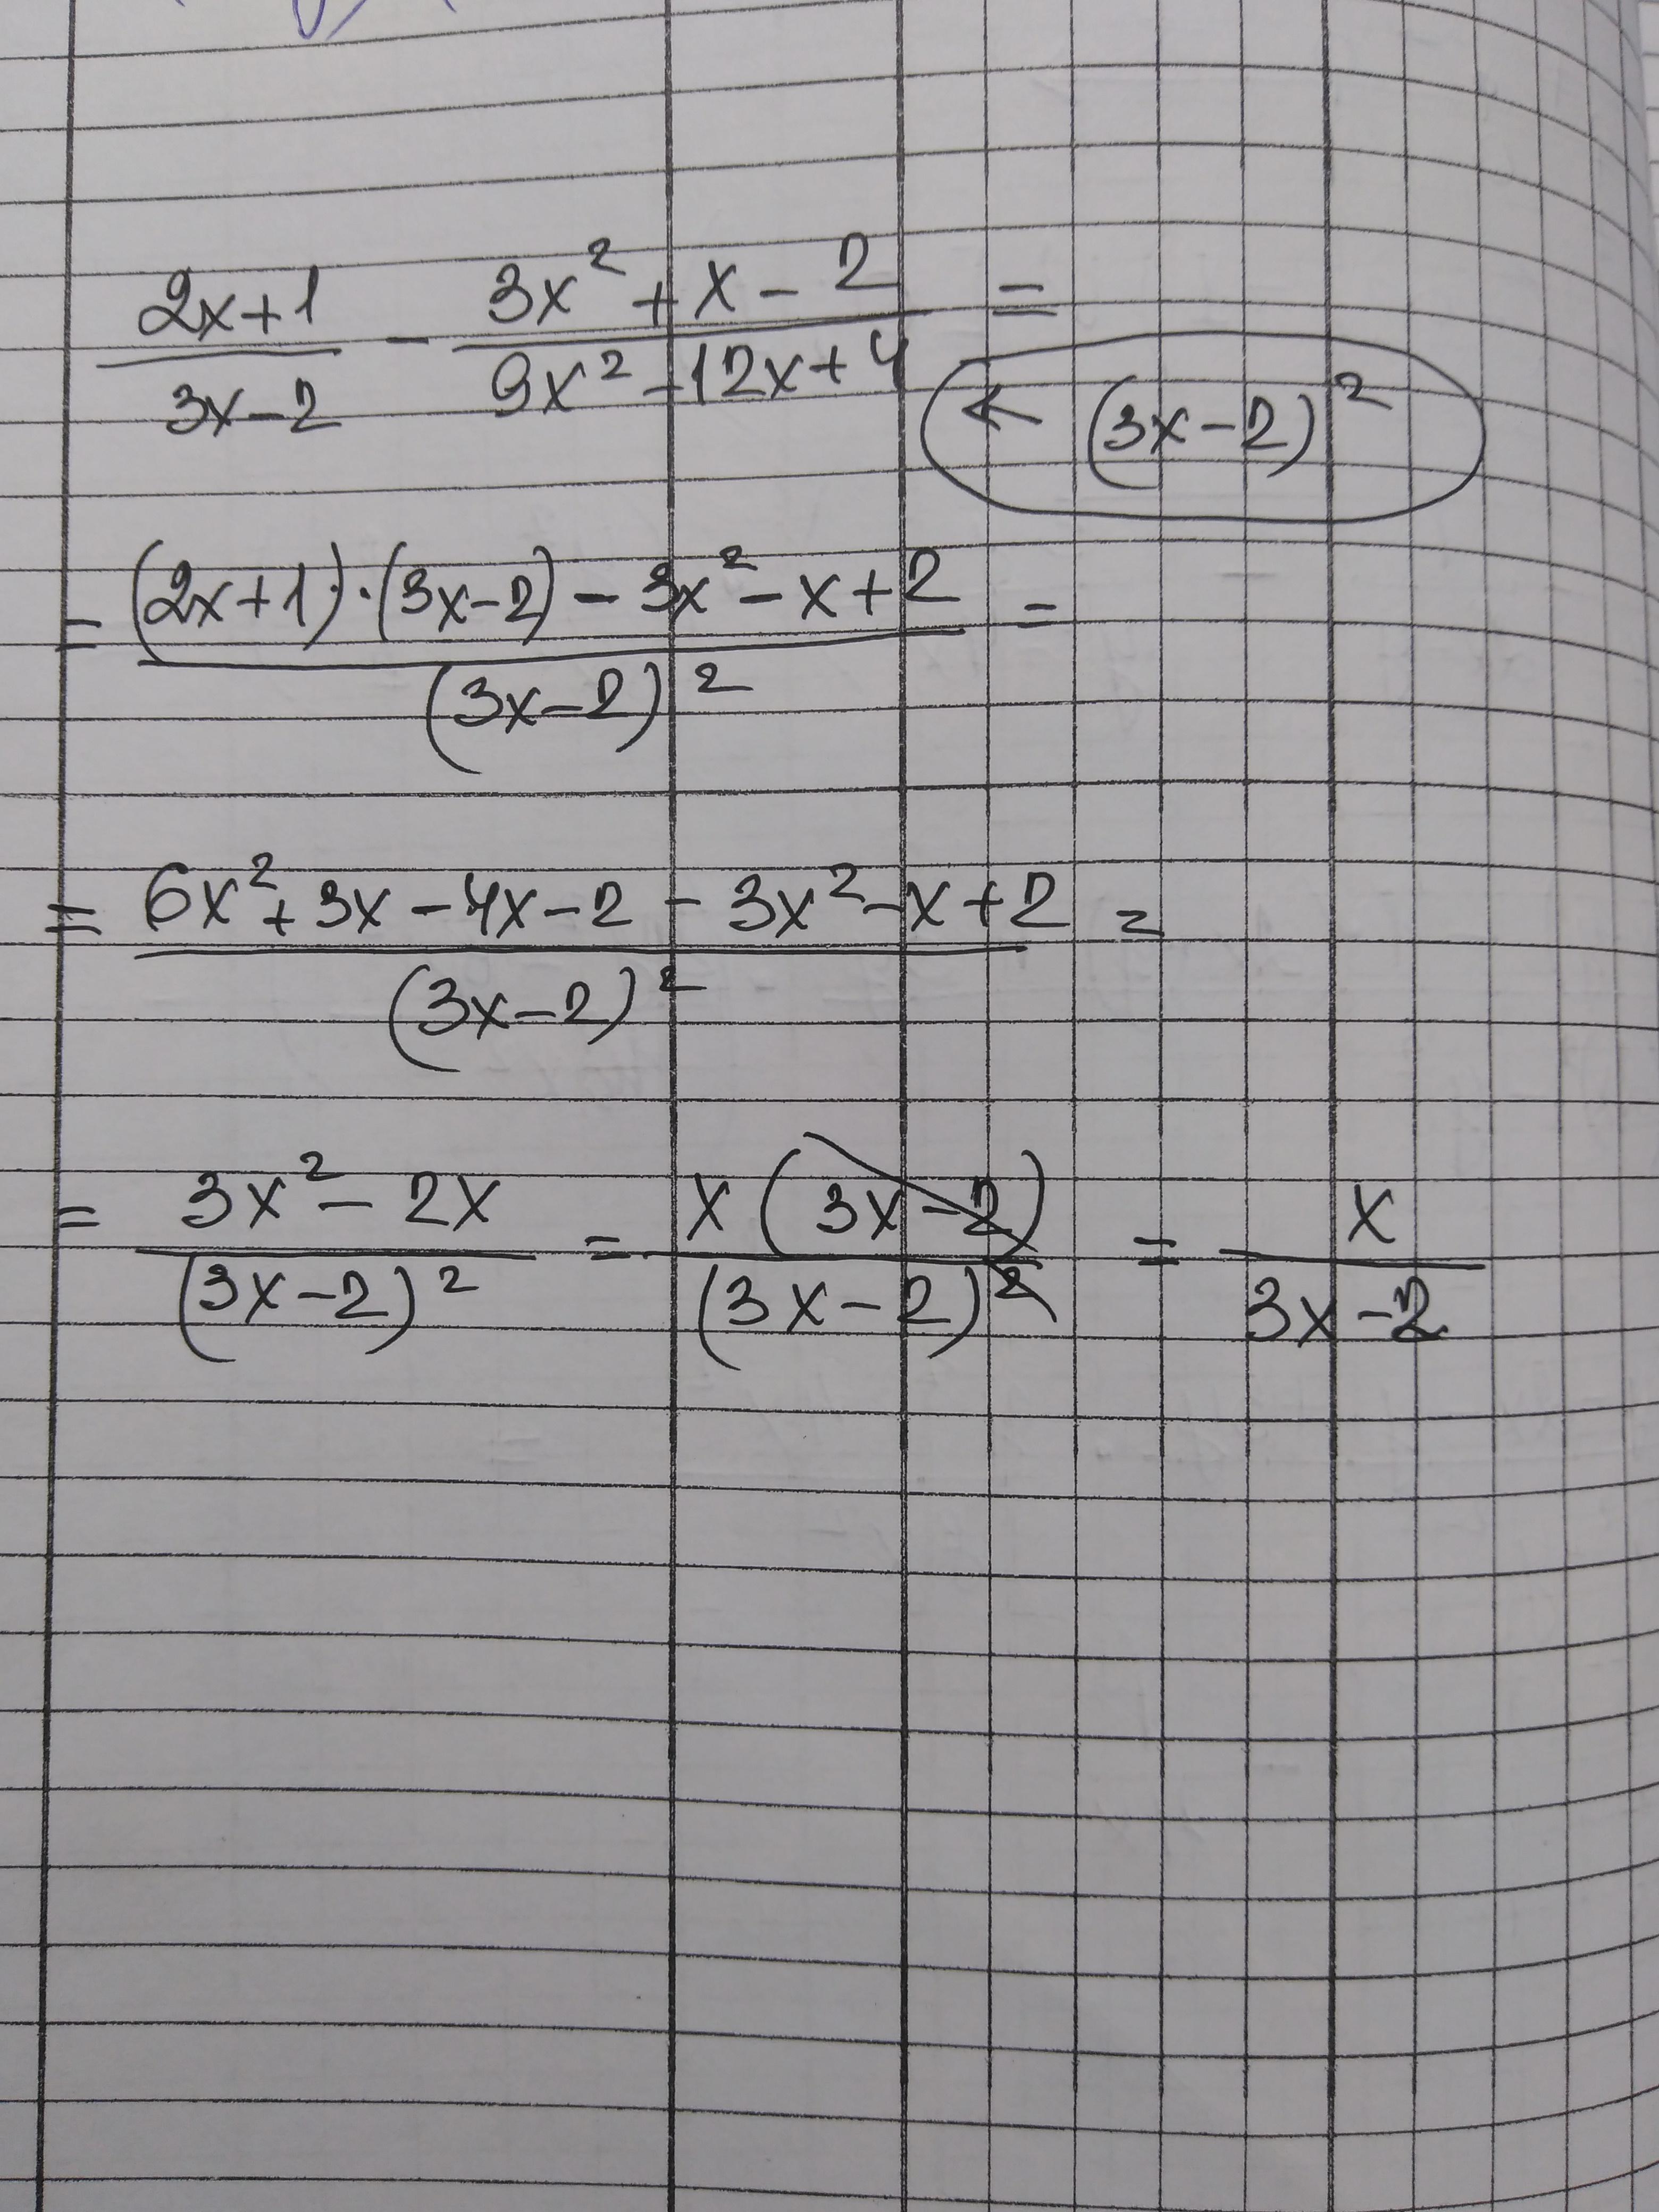 (2x+1)/(3x-2) - (3x²+x-2)/(9x²-12x+4) =
← (3x-2)²
= ((2x+1)·(3x-2) - 3x² - x + 2)/(3x-2)² =
= (6x²+3x-4x-2-3x²-x+2)/(3x-2)² =
= (3x²-2x)/(3x-2)² = x(3x-2)/(3x-2)² = x/(3x-2)